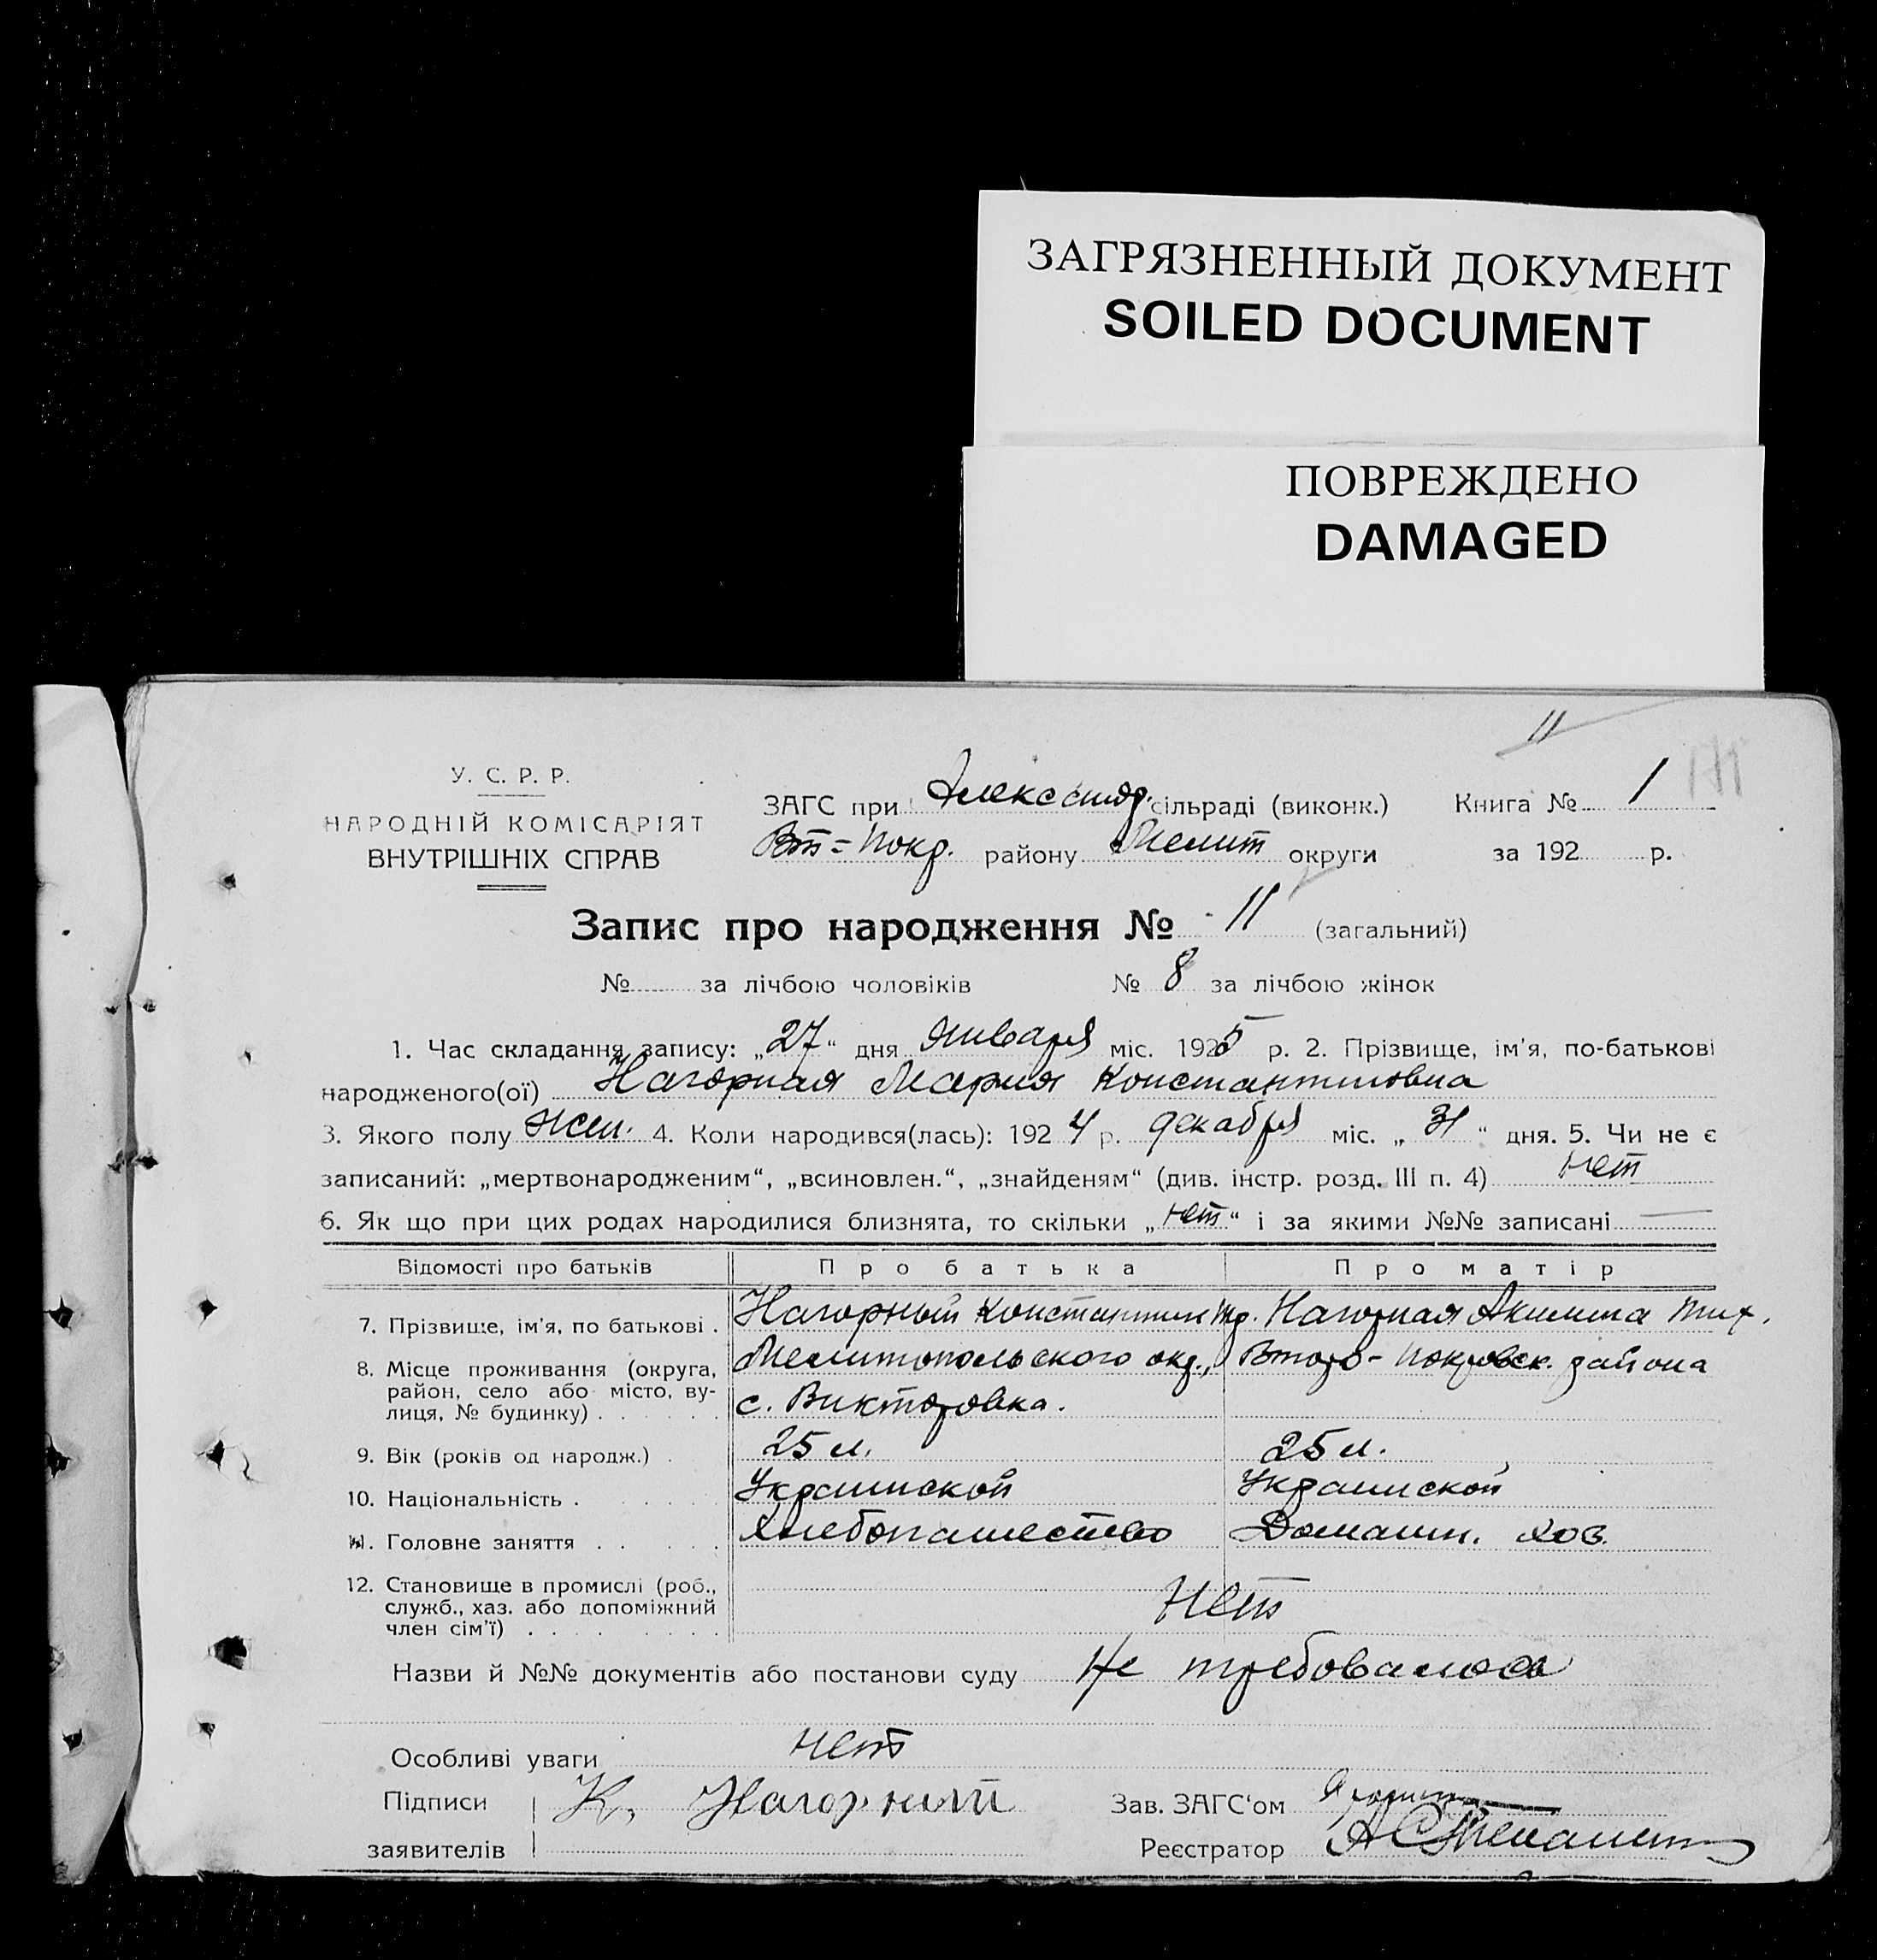 ЗАГРЯЗНЕННЫЙ ДОКУМЕНТ
SOILED DOCUMENT
ПОВРЕЖДЕНО
DAMAGED
11
У. С. Р. Р.
НАРОДНІЙ КОМІСАРІЯТ
ВНУТРІШНІХ СПРАВ
ЗАГС при Александр. сільраді (виконк.) Книга № 1
Вт-Покр. району Мелит округи за 192 р.
Запис про народження № 11 (загальний)
№ за лічбою чоловіків № 8 за лічбою жінок
1. Час складання запису: „27“ дня Января міс. 1925 р. 2. Прізвище, ім'я, по-батькові
народженого(ої) Нагорная Мария Константиновна
3. Якого полу жен. 4. Коли народився(лась): 1924 р. декабря міс. „31“ дня. 5. Чи не є
записаний: „мертвонародженим“, „всиновлен.“, „знайденям“ (див. інстр. розд. III п. 4) нет
6. Як що при цих родах народилися близнята, то скільки „нет“ і за якими №№ записані —
Відомості про батьків Про батька Про матір
7. Прізвище, ім'я, по батькові . Нагорный Константин Нагорная Акилина Тих.
8. Місце проживання (округа, Мелитопольского окр., Второ-Покровск. района
район, село або місто, ву- с. Викторовка.
лиця, № будинку) . . . . . .
9. Вік (років од народж.) . 25 л. 25 л.
10. Національність . . . . . Украинской Украинской
11. Головне заняття . . . . . Хлебопашество Домашн. хоз.
12. Становище в промислі (роб.,
служб., хаз. або допоміжний Нет
член сім'ї) . . . . . . . .
Назви й №№ документів або постанови суду Не требовалося
Особливі уваги нет
Підписи К. Нагорний Зав. ЗАГС'ом
заявителів Реєстратор